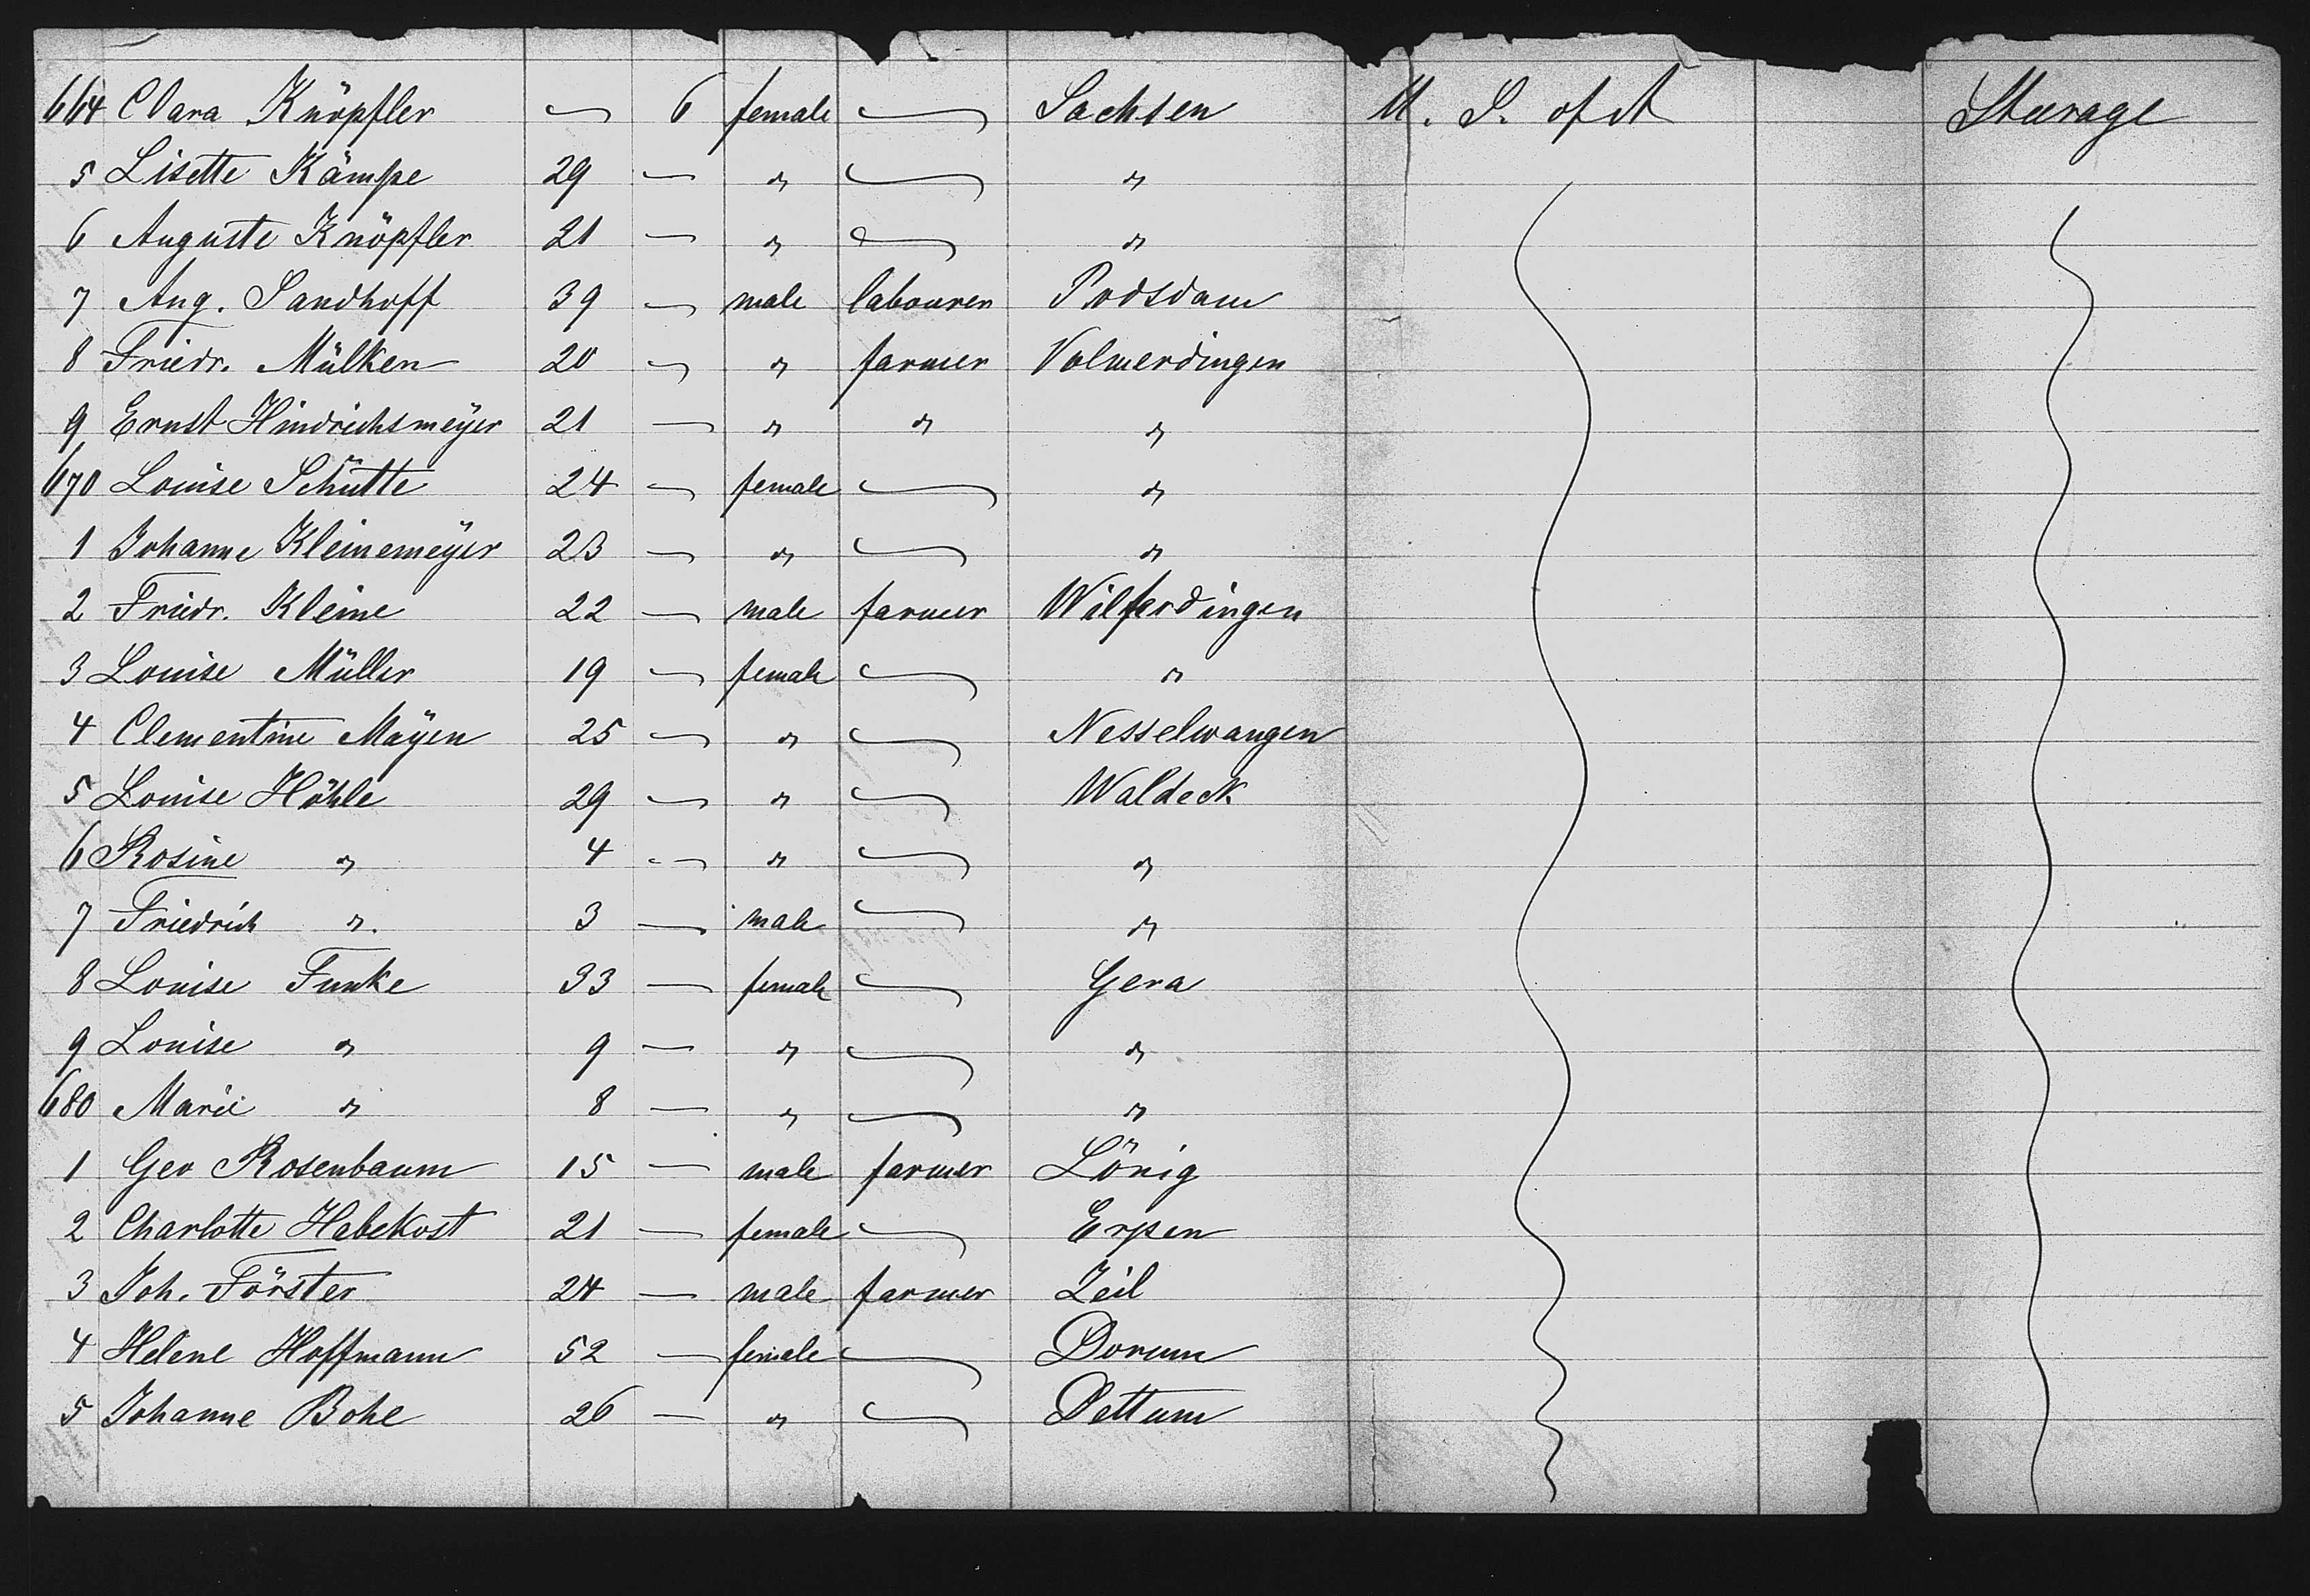 664 Clara Knöpfler — 6 female — Sachsen U. S. of A Steerage
5 Lisette Kämpe 29 — " — "
6 Auguste Knöpfler 21 — " — "
7 Aug. Sandhoff 39 — male labourer Podsdam
8 Friedr. Mülken 20 — " farmer Volmerdingen
9 Ernst Hindrichsmeÿer 21 — " " "
670 Louise Schütte 24 — female — "
1 Johanne Kleinemeÿer 23 — " — "
2 Friedr. Kleine 22 — male farmer Wilferdingen
3 Louise Müller 19 — female — "
4 Clementine Maÿen 25 — " — Nesselwangen
5 Louise Höhle 29 — " — Waldeck
6 Rosine " 4 — " — "
7 Friedrich " 3 — male — "
8 Louise Funke 33 — female — Gera
9 Louise " 9 — " — "
680 Marie " 8 — " — "
1 Geo Rosenbaum 15 — male farmer Lönig
2 Charlotte Habekost 21 — female — Erpen
3 Joh. Förster 24 — male farmer Zeil
4 Helene Hoffmann 52 — female — Dorum
5 Johanne Bohe 26 — " — Dettum